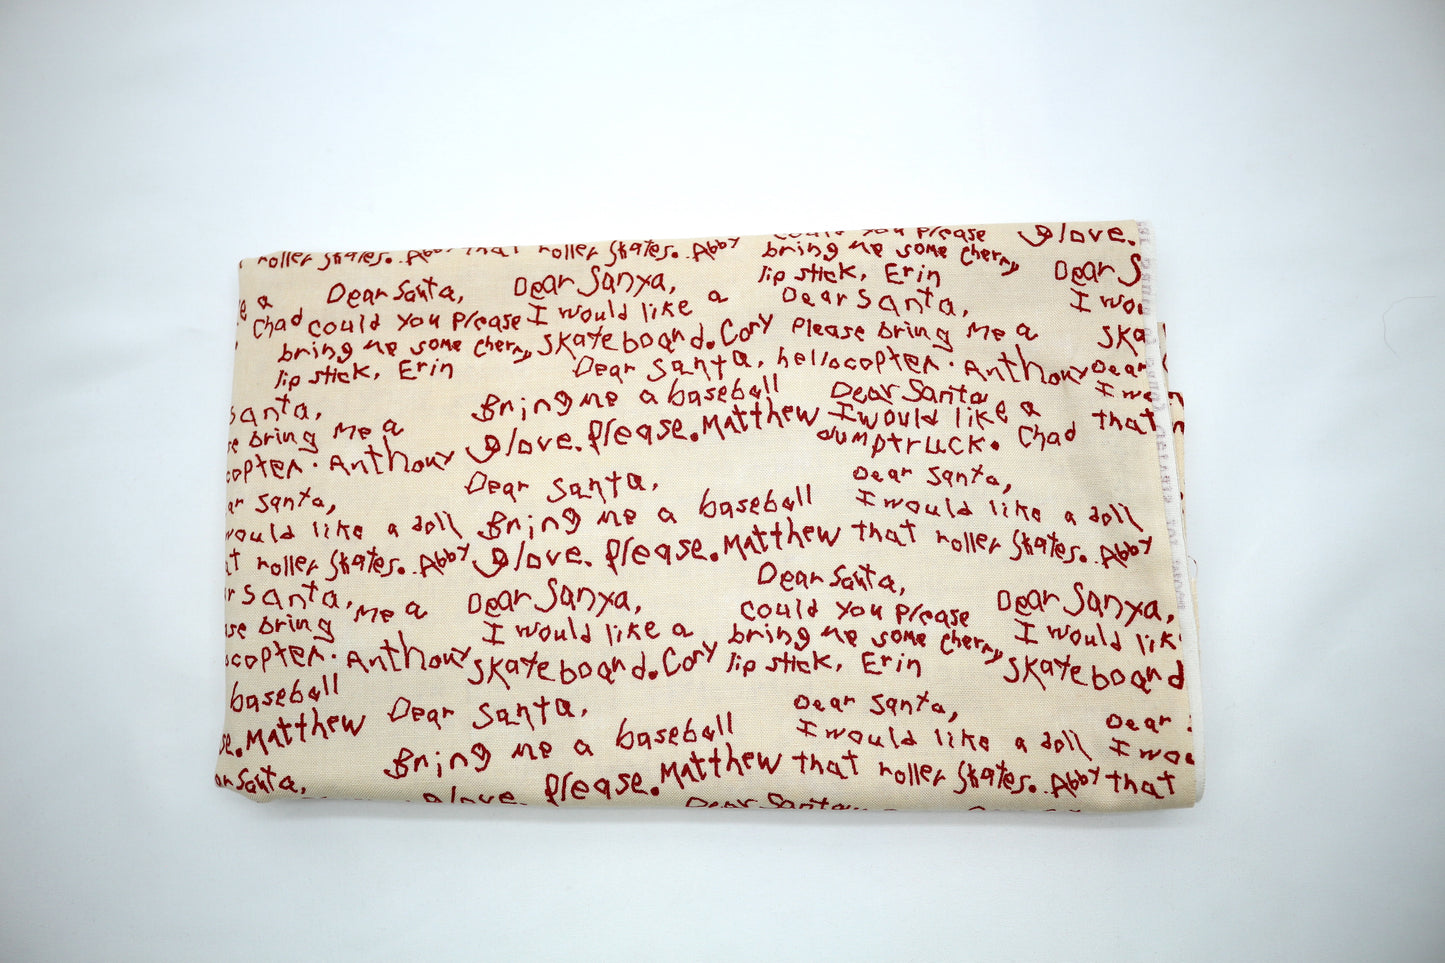 roller skates. Abby that roller skates. Abby
could you please
bring me some cherry
lip stick, Erin
glove.
Dear S
I wou
ska
e a
Chad
Dear Santa,
could you please
bring me some cherry
lip stick, Erin
Dear Sanxa,
I would like a
skateboard. Cory
Dear Santa,
Please bring me a
hellocopter. Anthony
Dear Santa,
Bring me a baseball
glove. please. Matthew
Dear Santa
I would like a
dumptruck. Chad
Dear
I wo
that
santa,
se bring me a
copter. Anthony
ar santa,
would like a doll
at roller skates. Abby
Dear Santa,
Bring me a baseball
glove. please. Matthew
Dear Santa,
I would like a doll
that roller skates. Abby
r santa,
se bring me a
ocopter. Anthony
Dear Sanxa,
I would like a
skateboard. Cory
Dear Santa,
could you please
bring me some cherry
lip stick, Erin
Dear Sanxa,
I would lik
skateboard
baseball
se. Matthew
Dear Santa,
Bring me a baseball
glove. please. Matthew
Dear Santa,
I would like a doll
that roller skates. Abby
Dear
I wou
that
ar Santa,
Dear Santa